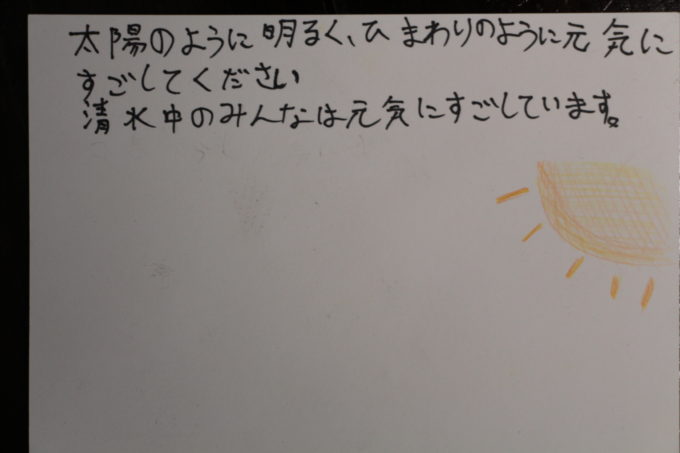 太陽のように明るく、ひまわりのように元気に
すごしてください
清水中のみんなは元気にすごしています。